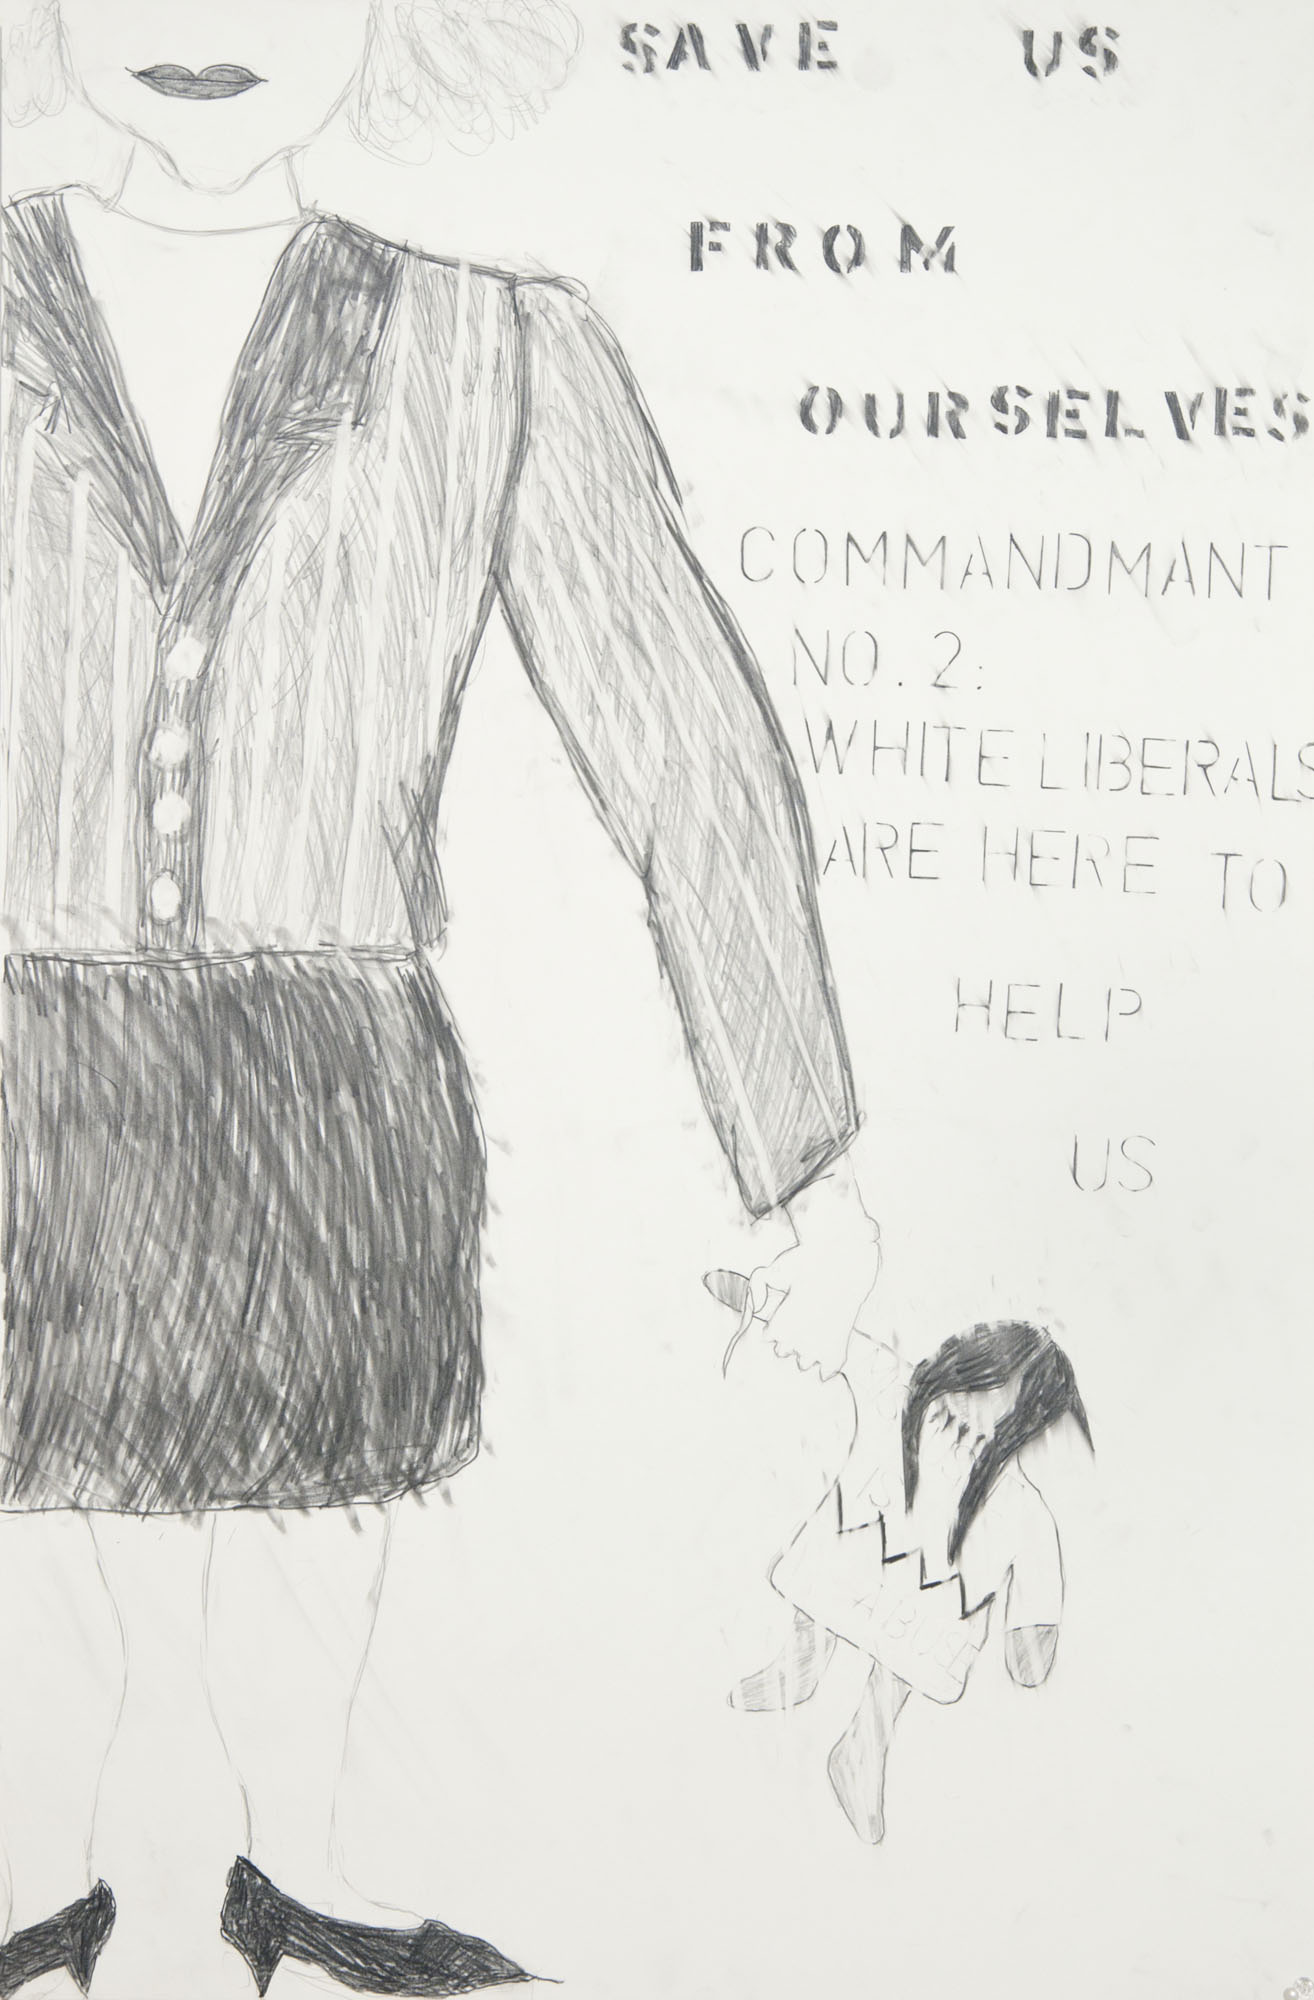 SAVE US
FROM
OURSELVES
COMMANDMANT
NO. 2:
WHITE LIBERALS
ARE HERE TO
HELP
US